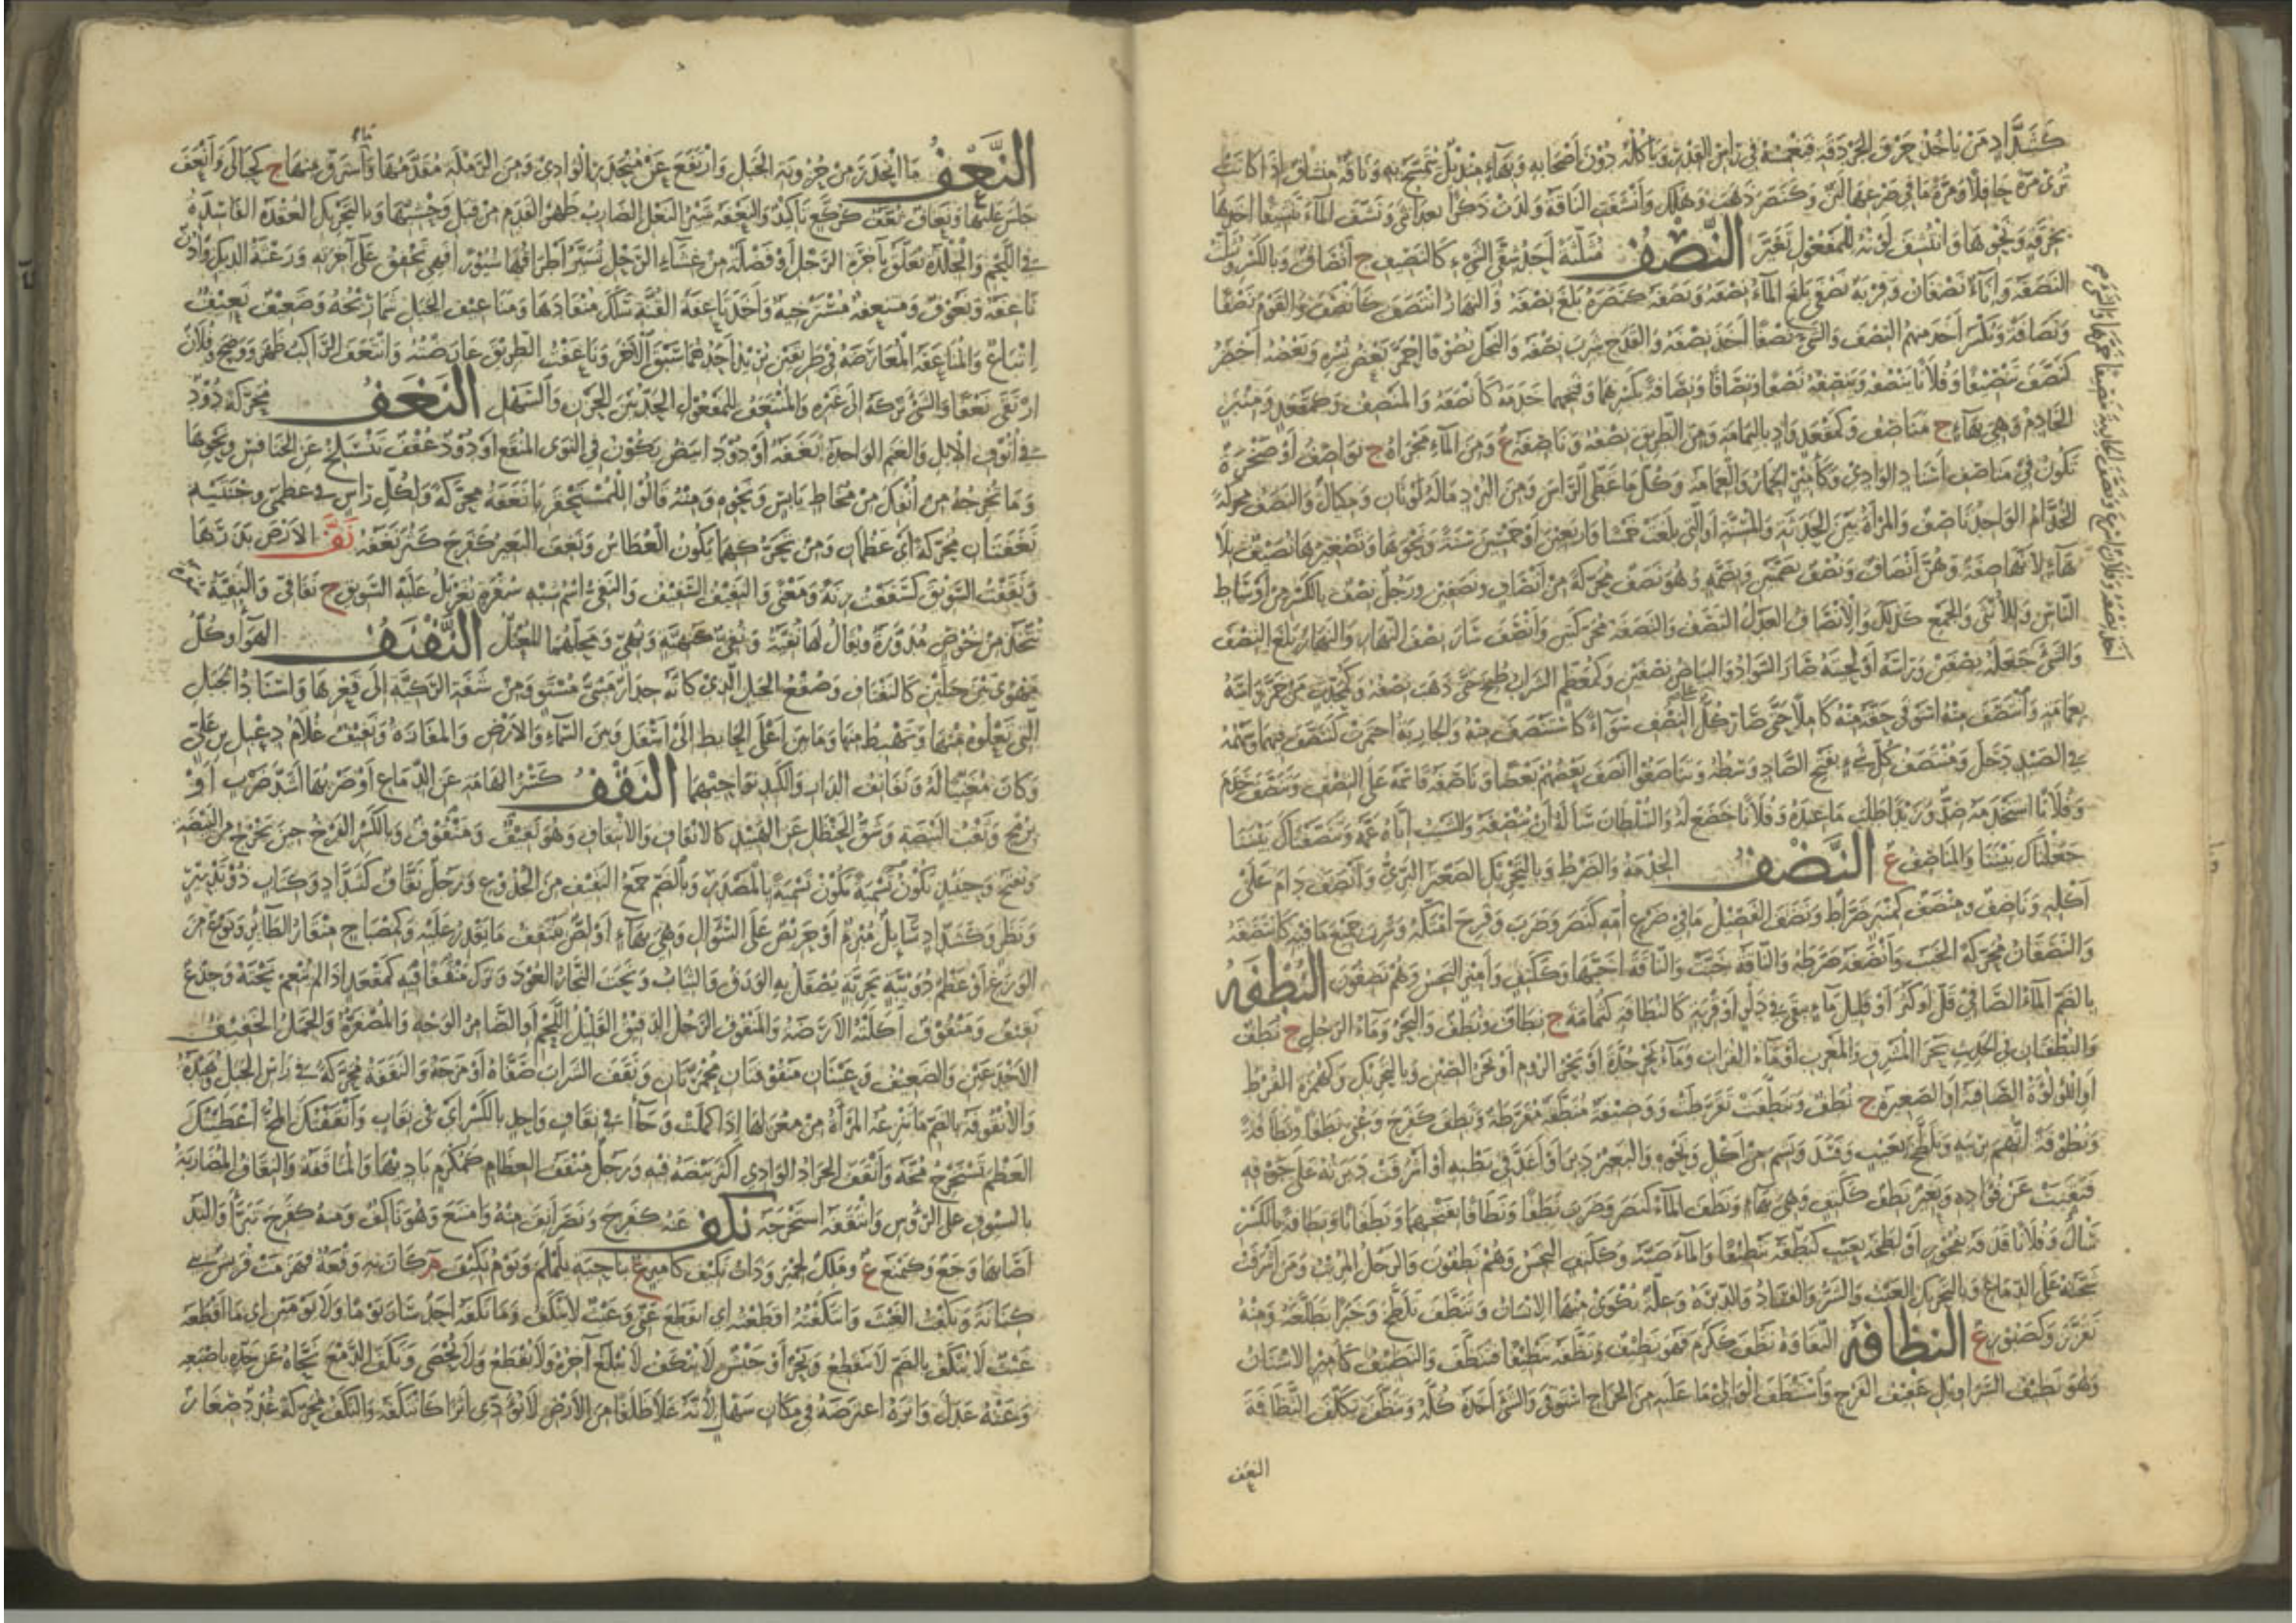 كَشَدَّادٍ مَنْ يَأْخُذُ حَرْفَ الجَرْدَقَةِ فَيَغْمِسُهُ فِي رَأْسِ القِدْرِ وَيَأْكُلُهُ دُونَ أَصْحَابِهِ وَبِهَاءٍ مِنْدِيلٌ يُتَمَسَّحُ بِهِ وَنَاقَةٌ مِنْشَافٌ إِذَا كَانَتْ
تُرَى مَرَّةً حَافِلًا وَمَرَّةً مَا فِي ضَرْعِهَا لَبَنٌ وَكَنَصَرَ ذَهَبَ وَهَلَكَ وَأَنْشَفَتِ النَّاقَةُ وَلَدَتْ ذَكَرًا بَعْدَ أُنْثَى وَنَشَّفَ المَاءَ تَنْشِيفًا أَخَذَهُ
بِخِرْقَةٍ وَنَحْوِهَا وَانْتُشِفَ لَوْنُهُ لِلْمَفْعُولِ تَغَيَّرَ النِّصْفُ مُثَلَّثَةً أَحَدُ شِقَّيِ الشَّيْءِ كَالنَّصِيفِ ج أَنْصَافٌ وَبِالكَسْرِ وَيُثَلَّثُ
النَّصَفَةُ وَإِنَاءٌ نَصْفَانُ وَقِرْبَةٌ نَصْفَى بَلَغَ المَاءُ نِصْفَهُ وَنَصَفَهُ كَنَصَرَهُ بَلَغَ نِصْفَهُ وَالنَّهَارُ انْتَصَفَ كَأَنْصَفَ وَالقَوْمَ نَصْفًا
وَنَصَافَةً وَتُكْسَرُ أَخَذَ مِنْهُمُ النِّصْفَ وَالشَّيْءَ نَصْفًا أَخَذَ نِصْفَهُ وَالقَدَحَ شَرِبَ نِصْفَهُ وَالنَّخْلُ نُصُوفًا احْمَرَّ بَعْضُ بُسْرِهِ وَبَعْضُهُ أَخْضَرُ
كَنَصَّفَ تَنْصِيفًا وَفُلَانًا يَنْصُفُهُ وَيَنْصِفُهُ نَصْفًا وَنِصَافًا وَنِصَافَةً بِكَسْرِهِمَا وَفَتْحِهِمَا خَدَمَهُ كَأَنْصَفَهُ وَالمَنْصَفُ وَكَمَقْعَدٍ وَمِنْبَرٍ
الخَادِمُ وَهِيَ بِهَاءٍ ج مَنَاصِفُ وَكَمَقْعَدٍ وَادٍ بِاليَمَامَةِ وَمِنَ الطَّرِيقِ نِصْفُهُ وَنَاصِفَةُ ع وَمِنَ المَاءِ مَجْرَاهُ ج نَوَاصِفُ أَوْ صَخْرَةٌ
تَكُونُ فِي مَنَاصِفِ أَسْنَادِ الوَادِي وَكَأَمِيرٍ الخِمَارُ وَالعِمَامَةُ وَكُلُّ مَا غَطَّى الرَّأْسَ وَمِنَ البُرْدِ مَا لَهُ لَوْنَانِ وَمِكْيَالٌ وَالنَّصَفُ مُحَرَّكَةً
الخُدَّامُ الوَاحِدُ نَاصِفٌ وَالمَرْأَةُ بَيْنَ الحَدَثَةِ وَالمُسِنَّةِ أَوِ الَّتِي بَلَغَتْ خَمْسًا وَأَرْبَعِينَ أَوْ خَمْسِينَ سَنَةً وَنَحْوَهَا وَتَصْغِيرُهَا نُصَيْفٌ بِلَا
هَاءٍ لِأَنَّهَا صِفَةٌ وَهُنَّ أَنْصَافٌ وَنُصُفٌ بِضَمَّتَيْنِ وَبِضَمَّةٍ وَهُوَ نَصَفٌ مُحَرَّكَةً مِنْ أَنْصَافٍ وَنَصَفِينَ وَرَجُلٌ نِصْفٌ بِالكَسْرِ مِنْ أَوْسَاطِ
النَّاسِ وَلِلْأُنْثَى وَالجَمْعِ كَذَلِكَ وَالإِنْصَافُ العَدْلُ النَّصَفُ وَالنَّصَفَةُ مُحَرَّكَتَيْنِ وَأَنْصَفَ سَارَ نِصْفَ النَّهَارِ وَالنَّهَارُ بَلَغَ النِّصْفَ
وَالشَّيْءَ جَعَلَهُ نِصْفَيْنِ وَرَأْسَهُ أَوْ لِحْيَتَهُ صَارَ السَّوَادُ وَالبَيَاضُ نِصْفَيْنِ وَكَمُعَظَّمٍ الشَّرَابُ طُبِخَ حَتَّى ذَهَبَ نِصْفُهُ وَكَمُحَدِّثٍ مَنْ خَمَّرَ رَأْسَهُ
بِعِمَامَةٍ وَانْتَصَفَ مِنْهُ اسْتَوْفَى حَقَّهُ مِنْهُ كَامِلًا حَتَّى صَارَ كُلٌّ عَلَى النِّصْفِ سَوَاءً كَاسْتَنْصَفَ مِنْهُ وَالجَارِيَةُ اخْتَمَرَتْ كَتَنَصَّفَ فِيهِمَا وَسَهْمُهُ
فِي الصَّيْدِ دَخَلَ وَمُنْتَصَفُ كُلِّ شَيْءٍ بِفَتْحِ الصَّادِ وَسَطُهُ وَتَنَاصَفُوا أَنْصَفَ بَعْضُهُمْ بَعْضًا وَنَاصَفَهُ قَاسَمَهُ عَلَى النِّصْفِ وَتَنَصَّفَ خَدَمَ
وَفُلَانًا اسْتَخْدَمَهُ ضِدٌّ وَزَيْدًا طَلَبَ مَا عِنْدَهُ وَفُلَانًا خَضَعَ لَهُ وَالسُّلْطَانَ سَأَلَهُ أَنْ يُنْصِفَهُ وَالشَّيْبُ إِيَّاهُ عَمَّهُ وَتَنَصَّفْنَاكَ بَيْنَنَا
جَعَلْنَاكَ بَيْنَنَا وَالمَنَاصِفُ ع النَّضْفُ الخِدْمَةُ وَالضَّرْطُ وَبِالتَّحْرِيكِ الصَّعْتَرُ البَرِّيُّ وَأَنْضَفَ دَامَ عَلَى
أَكْلِهِ وَنَاضِفٌ وَمِنْضَفٌ كَمِنْبَرٍ ضَرَّاطٌ وَنَضَفَ الفَصِيلُ مَا فِي ضَرْعِ أُمِّهِ كَنَصَرَ وَضَرَبَ وَفَرِحَ امْتَكَّهُ وَشَرِبَ جَمِيعَ مَا فِيهِ كَانْتَضَفَهُ
وَالنَّضَفَانُ مُحَرَّكَةً الخَبَبُ وَأَنْضَفَهُ ضَرَّطَهُ وَالنَّاقَةُ خَبَّتْ وَالنَّاقَةَ أَخَبَّهَا وَكَكَتِفٍ وَأَمِيرٍ النَّجِسُ وَهُمْ نَضِفُونَ النُّطْفَةُ
بِالضَّمِّ المَاءُ الصَّافِي قَلَّ أَوْ كَثُرَ أَوْ قَلِيلُ مَاءٍ يَبْقَى فِي دَلْوٍ أَوْ قِرْبَةٍ كَالنُّطَافَةِ كَثُمَامَةٍ ج نِطَافٌ وَنُطَفٌ وَالبَحْرُ وَمَاءُ الرَّجُلِ ج نُطَفٌ
وَالنُّطْفَتَانِ فِي الحَدِيثِ بَحْرَا المَشْرِقِ وَالمَغْرِبِ أَوْ مَاءُ الفُرَاتِ وَمَاءُ بَحْرِ جُدَّةَ أَوْ بَحْرُ الرُّومِ أَوْ بَحْرُ الصِّينِ وَبِالتَّحْرِيكِ وَكَهُمَزَةٍ القُرْطُ
أَوِ اللُّؤْلُؤَةُ الصَّافِيَةُ أَوِ الصَّغِيرَةُ ج نُطَفٌ وَتَنَطَّفَتْ تَقَرَّطَتْ وَوَصِيفَةٌ مُنَطَّفَةٌ مُقَرَّطَةٌ وَنَطِفَ كَفَرِحَ وَعُنِيَ نَطَفًا وَنَطَافَةً
وَنُطُوفَةً اتُّهِمَ بِرِيبَةٍ وَتَلَطَّخَ بِعَيْبٍ وَفَسَدَ وَبَشِمَ مِنْ أَكْلٍ وَنَحْوِهِ وَالبَعِيرُ دَبِرَ أَوْ أَغَدَّ فِي بَطْنِهِ أَوْ أَشْرَفَتْ دَبَرَتُهُ عَلَى جَوْفِهِ
فَنَقَبَتْ عَنْ فُؤَادِهِ وَبَعِيرٌ نَطِفٌ كَكَتِفٍ وَهِيَ بِهَاءٍ وَنَطَفَ المَاءُ كَنَصَرَ وَضَرَبَ نَطْفًا وَتَنْطَافًا بِفَتْحِهِمَا وَنَطَفَانًا وَنِطَافَةً بِالكَسْرِ
سَالَ وَفُلَانًا قَذَفَهُ بِفُجُورٍ أَوْ لَطَخَهُ بِعَيْبٍ كَنَطَّفَهُ تَنْطِيفًا وَالمَاءَ صَبَّهُ وَكَكَتِفٍ النَّجِسُ وَهُمْ نَطِفُونَ وَالرَّجُلُ المُرِيبُ وَمَنْ أَشْرَفَتْ
شَجَّتُهُ عَلَى الدِّمَاغِ وَبِالتَّحْرِيكِ العَيْبُ وَالشَّرُّ وَالفَسَادُ وَالدَّبَرَةُ وَعِلَّةٌ يُكْوَى مِنْهَا الإِنْسَانُ وَتَنَطَّفَ تَلَطَّخَ وَخَبَرًا تَطَلَّعَهُ وَمِنْهُ
تَقَزَّزَ وَكَصَبُورٍ ع النَّظَافَةُ النَّقَاوَةُ نَظُفَ كَكَرُمَ فَهُوَ نَظِيفٌ وَنَظَّفَهُ تَنْظِيفًا فَتَنَظَّفَ وَالنَّظِيفُ كَأَمِيرٍ الأُشْنَانُ
وَهُوَ نَظِيفُ السَّرَاوِيلِ عَفِيفُ الفَرْجِ وَاسْتَنْظَفَ الوَالِي مَا عَلَيْهِ مِنَ الخَرَاجِ اسْتَوْفَى وَالشَّيْءَ أَخَذَهُ كُلَّهُ وَتَنَظَّفَ تَكَلَّفَ النَّظَافَةَ
النعف
النَّعْفُ مَا انْحَدَرَ مِنْ حُزُونَةِ الجَبَلِ وَارْتَفَعَ عَنْ مُنْحَدَرِ الوَادِي وَمِنَ الرَّمْلَةِ مُقَدَّمُهَا وَمَا اسْتَرَقَّ مِنْهَا ج كَجِبَالٍ وَأَنْعَفَ
جَلَسَ عَلَيْهَا وَنِعَافٌ نُعَّفٌ كَرُكَّعٍ تَأْكِيدٌ وَالنَّعْفَةُ سَيْرُ النَّعْلِ الضَّارِبُ ظَهْرَ القَدَمِ مِنْ قِبَلِ وَحْشِيِّهَا وَبِالتَّحْرِيكِ العُقْدَةُ الفَاسِدَةُ
فِي اللَّحْمِ وَالجِلْدَةُ تُعَلَّقُ بِآخِرَةِ الرَّحْلِ أَوْ فَضْلَةٌ مِنْ غِشَاءِ الرَّحْلِ تُسَيَّرُ أَطْرَافُهَا سُيُورًا فَهِيَ تَخْفِقُ عَلَى آخِرَتِهِ وَرَعْثَةُ الدِّيكِ وَأُذُنٌ
نَاعِفَةٌ وَنَعُوفٌ وَمُنْتَعِفَةٌ مُسْتَرْخِيَةٌ وَأَخَذَ نَاعِفَةَ القُنَّةِ سَلَكَ مُنْقَادَهَا وَمَنَاعِفُ الجَبَلِ شَمَارِيخُهُ وَضَعِيفٌ نَعِيفٌ
إِتْبَاعٌ وَالمُنَاعَفَةُ المُعَارَضَةُ فِي طَرِيقَيْنِ يُرِيدُ أَحَدُهُمَا سَبْقَ الآخَرِ وَنَاعَفْتُ الطَّرِيقَ عَارَضْتُهُ وَانْتَعَفَ الرَّاكِبُ ظَهَرَ وَوَضَحَ وَفُلَانٌ
ارْتَقَى نَعْفًا وَالشَّيْءَ تَرَكَهُ إِلَى غَيْرِهِ وَالمُنْتَعَفُ لِلْمَفْعُولِ الحَدُّ بَيْنَ الحَزْنِ وَالسَّهْلِ النَّغَفُ مُحَرَّكَةً دُودٌ
فِي أُنُوفِ الإِبِلِ وَالغَنَمِ الوَاحِدَةُ نَغَفَةٌ أَوْ دُودٌ أَبْيَضُ يَكُونُ فِي النَّوَى المُنْقَعِ أَوْ دُودٌ عُقْفٌ تَنْسَلِخُ عَنِ الخَنَافِسِ وَنَحْوِهَا
وَمَا تُخْرِجُهُ مِنْ أَنْفِكَ مِنْ مُخَاطٍ يَابِسٍ وَنَحْوِهِ وَمِنْهُ قَالُوا لِلْمُسْتَحْقَرِ يَا نَغَفَةُ مُحَرَّكَةً وَلِكُلِّ رَأْسٍ فِي عَظْمَيْ وَجْنَتَيْهِ
نَغَفَتَانِ مُحَرَّكَةً أَيْ عَظْمَانِ وَمِنْ تَحَرُّكِهِمَا يَكُونُ العُطَاسُ وَنَغِفَ البَعِيرُ كَفَرِحَ كَثُرَ نَغَفُهُ نَفَّ الأَرْضَ بَذَرَهَا
وَنَفِفْتُ السَّوِيقَ كَسَفِفْتُ زِنَةً وَمَعْنًى وَالنَّفِيفُ السَّفِيفُ وَالنَّفِّيُّ اسْمٌ شِبْهُ سُفْرَةٍ يُغَرْبَلُ عَلَيْهِ السَّوِيقُ ج نَفَافِيُّ وَالنَّفِّيَّةُ
تُتَّخَذُ مِنْ خُوصٍ مُدَوَّرَةً وَيُقَالُ لَهَا نُفْيَةٌ وَنُفًى كَنُهْيَةٍ وَنُهًى وَمَحَلُّهُمَا المُعْتَلُّ النَّفْنَفُ الهَوَاءُ وَكُلُّ
مَهْوًى بَيْنَ جَبَلَيْنِ كَالنَّفْنَافِ وَصُقْعُ الجَبَلِ الَّذِي كَأَنَّهُ جِدَارٌ مَبْنِيٌّ مُسْتَوٍ وَمِنْ شَفَةِ الرَّكِيَّةِ إِلَى قَعْرِهَا وَأَسْنَادُ الجَبَلِ
الَّتِي تَعْلُوهُ مِنْهَا وَتَهْبِطُ مِنْهَا وَمَا بَيْنَ أَعْلَى الحَائِطِ إِلَى أَسْفَلَ وَبَيْنَ السَّمَاءِ وَالأَرْضِ وَالمَفَازَةُ وَنَفْنَفٌ غُلَامُ دِعْبِلِ بْنِ عَلِيٍّ
وَكَانَ مُغَنِّيًا لَهُ وَنَفَانِفُ الدَّارِ وَالكَبِدِ نَوَاحِيهِمَا النَّقْفُ كَسْرُ الهَامَةِ عَنِ الدِّمَاغِ أَوْ ضَرْبُهَا أَشَدَّ ضَرْبٍ أَوْ
بِرُمْحٍ وَثَقْبُ البَيْضَةِ وَشَقُّ الحَنْظَلِ عَنِ الهَبِيدِ كَالإِنْقَافِ وَالِانْتِقَافِ وَهُوَ نَقِيفٌ وَمَنْقُوفٌ وَبِالكَسْرِ الفَرْخُ حِينَ يَخْرُجُ مِنَ البَيْضَةِ
وَيُفْتَحُ وَحِينَئِذٍ تَكُونُ تَسْمِيَةً بِالمَصْدَرِ وَبِالضَّمِّ جَمْعُ النَّقِيفِ مِنَ الجُذُوعِ وَرَجُلٌ نَقَّافٌ كَشَدَّادٍ وَكِتَابٍ ذُو تَدْبِيرٍ
وَنَظَرٍ وَكَشَدَّادٍ سَائِلٌ مُبْرِمٌ أَوْ حَرِيصٌ عَلَى السُّؤَالِ وَهِيَ بِهَاءٍ أَوْ لِصٌّ يَنْتَقِفُ مَا يَقْدِرُ عَلَيْهِ وَكَمِصْبَاحٍ مِنْقَارُ الطَّائِرِ وَنَوْعٌ مِنَ
الوَزَعِ أَوْ عَظْمُ دُوَيْبَّةٍ بَحْرِيَّةٍ يُصْقَلُ بِهِ الوَرَقُ وَالثِّيَابُ وَنَحَتَ النَّجَّارُ العُودَ وَتَرَكَ مَنْقَفًا فِيهِ كَمَقْعَدٍ إِذَا لَمْ يُنْعِمْ نَحْتَهُ وَجِذْعٌ
نَقِيفٌ وَمَنْقُوفٌ أَكَلَتْهُ الأَرَضَةُ وَالمَنْقُوفُ الرَّجُلُ الدَّقِيقُ القَلِيلُ اللَّحْمِ أَوِ الضَّامِرُ الوَجْهِ وَالمُصْفَرُّهُ وَالجَمَلُ الخَفِيفُ
الأَخْدَعَيْنِ وَالضَّعِيفُ وَعَيْنَانِ مَنْقُوفَتَانِ مُحْمَرَّتَانِ وَنَقَفَ الشَّرَابَ صَفَّاهُ أَوْ مَزَجَهُ وَالنَّقَفَةُ مُحَرَّكَةً فِي رَأْسِ الجَبَلِ وُهَيْدَةٌ
وَالأُنْقُوفَةُ بِالضَّمِّ مَا تَنْزِعُهُ المَرْأَةُ مِنْ مِغْزَلِهَا إِذَا كَمَلَتْ وَجَاءَا فِي نِقَابٍ وَاحِدٍ بِالكَسْرِ أَيْ فِي نِقَابٍ وَأَنْقَفْتُكَ المُخَّ أَعْطَيْتُكَ
العَظْمَ تَسْتَخْرِجُ مُخَّهُ وَأَنْقَفَ الجَرَادُ الوَادِيَ أَكْثَرَ بَيْضَهُ فِيهِ وَرَجُلٌ مُنْقَفُ العِظَامِ كَمُكْرَمٍ بَادِيهَا وَالمُنَاقَفَةُ وَالنِّقَافُ المُضَارَبَةُ
بِالسُّيُوفِ عَلَى الرُّؤُوسِ وَانْتَقَفَهُ اسْتَخْرَجَهُ نَكِفَ عَنْهُ كَفَرِحَ وَنَصَرَ أَنِفَ مِنْهُ وَامْتَنَعَ وَهُوَ نَاكِفٌ وَمِنْهُ كَفَرِحَ تَبَرَّأَ وَاليَدُ
أَصَابَهَا وَجَعٌ وَكَيَمْنَعُ ع وَمَلِكٌ لِحِمْيَرَ وَذَاتُ نَكِيفٍ كَأَمِيرٍ ع بِنَاحِيَةِ يَلَمْلَمَ وَيَوْمُ نَكِيفٍ م كَانَ بِهِ وَقْعَةٌ فَهَزَمَتْ قُرَيْشٌ بَنِي
كِنَانَةَ وَنَكَفْتُ الغَيْثَ وَانْتَكَفْتُهُ أَقْطَعْتُهُ أَيِ انْقَطَعَ عَنِّي وَغَيْثٌ لَا يُنْكَفُ وَمَا نَكَفَهُ أَحَدٌ سَارَ يَوْمًا وَلَا يَوْمَيْنِ أَيْ مَا أَقْطَعَهُ
غَيْثٌ لَا يُنْكَفُ بِالضَّمِّ لَا يَنْقَطِعُ وَبَحْرٌ أَوْ جَيْشٌ لَا يُنْكَفُ لَا يُبْلَغُ آخِرُهُ وَلَا يُقْطَعُ وَلَا يُحْصَى وَنَكَفَ الدَّمْعَ نَحَّاهُ عَنْ خَدِّهِ بِإِصْبَعِهِ
وَعَنْهُ عَدَلَ وَأَثَرَهُ اعْتَرَضَهُ فِي مَكَانٍ سَهْلٍ لِأَنَّهُ عَلَا ظَلَفًا مِنَ الأَرْضِ لَا تُؤَدِّي أَثَرًا كَانْتَكَفَهُ وَالنَّكَفُ مُحَرَّكَةً غُدَدٌ صِغَارٌ